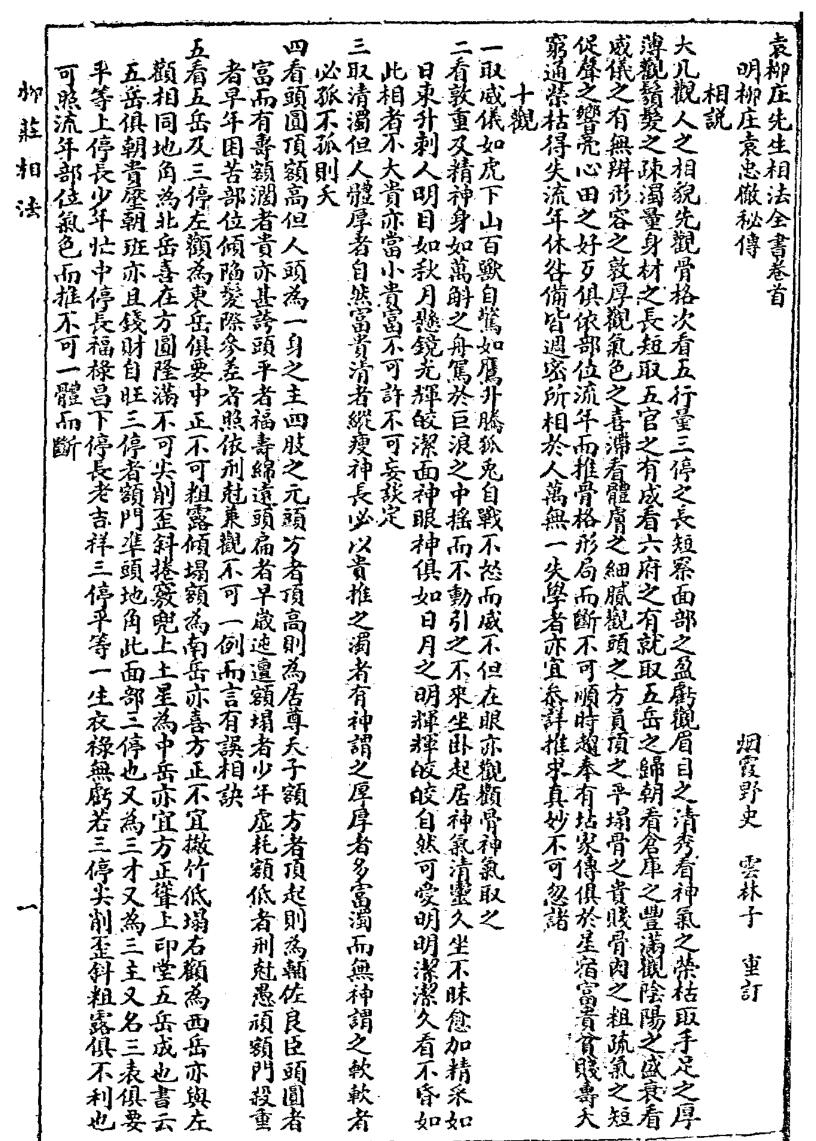 袁柳庄先生相法全書卷首
明柳庄袁忠徹秘傳
烟霞野史　雲林子　重訂
相説
大凡觀人之相貌先觀骨格次看五行量三停之長短察面部之盈虧觀眉目之清秀看神氣之榮枯取手足之厚
薄觀鬚髮之疎濁量身材之長短取五官之有成看六府之有就取五岳之歸朝看倉庫之豐滿觀陰陽之盛衰看
威儀之有無辨形容之敦厚觀氣色之喜滯看體膚之細膩觀頭之方員頂之平塌骨之貴賤骨肉之粗疏氣之短
促聲之響亮心田之好歹俱依部位流年而推骨格形局而斷不可順時趨奉有玷家傳俱於星宿富貴貧賤壽夭
窮通榮枯得失流年休咎備皆週密所相於人萬無一失學者亦宜叅詳推求真妙不可忽諸
十觀
一取威儀如虎下山百獸自驚如鷹升騰狐兎自戰不怒而威不但在眼亦觀顴骨神氣取之
二看敦重及精神身如萬斛之舟駕於巨浪之中揺而不動引之不來坐卧起居神氣清靈久坐不昧愈加精采如
日東升刺人眀目如秋月懸鏡光輝皎潔面神眼神俱如日月之明輝輝皎皎自然可愛明明潔潔久看不昏如
此相者不大貴亦當小貴富不可許不可妄談定
三取清濁但人體厚者自然富貴清者縱瘦神長必以貴推之濁者有神謂之厚厚者多富濁而無神謂之軟軟者
必孤不孤則夭
四看頭圓頂額高但人頭為一身之主四肢之元頭方者頂高則為居尊天子額方者頂起則為輔佐良臣頭圓者
富而有壽額濶者貴亦甚誇頭平者福壽綿遠頭扁者早歲迍邅額塌者少年虛耗額低者刑尅愚頑額門殺重
者早年困苦部位傾陷髮際參差者照依刑尅兼觀不可一例而言有誤相訣
五看五岳及三停左顴為東岳俱要中正不可粗露傾塌額為南岳亦喜方正不宜撇竹低塌右顴為西岳亦與左
顴相同地角為北岳喜在方圓隆滿不可尖削歪斜捲竅兜上土星為中岳亦宜方正聳上印堂五岳成也書云
五岳俱朝貴壓朝班亦且錢財自旺三停者額門準頭地角此面部三停也又為三才又為三主又名三表俱要
平等上停長少年忙中停長福祿昌下停長老吉祥三停平等一生衣祿無虧若三停尖削歪斜粗露俱不利也
可照流年部位氣色而推不可一體而斷
柳莊相法
一